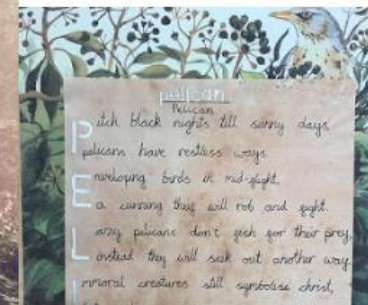 pelican
Pelican
Pitch black nights till sunny days,
pelicans have restless ways.
Enveloping birds in mid-flight.
a cunning thief will rob and fight.
Lazy pelicans don't fish for their prey,
Instead they will seek out another way.
immoral creatures still symbolise christ,